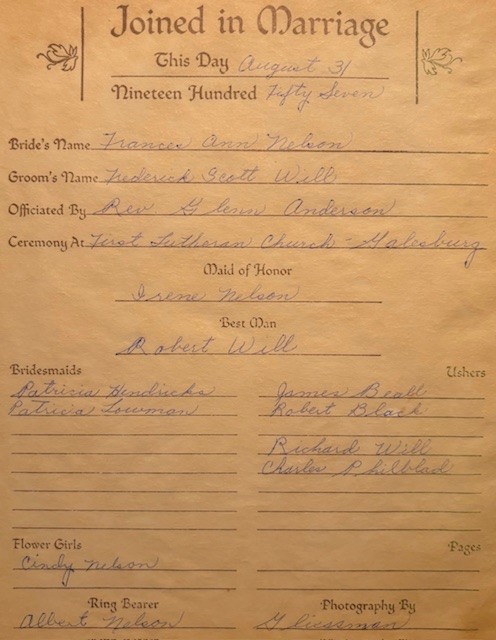 Joined in Marriage
This Day August 31
Nineteen Hundred Fifty Seven
Bride's Name Frances Ann Nelson
Groom's Name Frederick Scott Will
Officiated By Rev Glenn Anderson
Ceremony At First Lutheran Church - Galesburg
Maid of Honor
Irene Nelson
Best Man
Robert Will
Bridesmaids
Patricia Hendricks
Patricia Lowman
Ushers
James Beall
Robert Black
Richard Will
Charles Philblad
Flower Girls
Cindy Nelson
Pages
Ring Bearer
Albert Nelson
Photography By